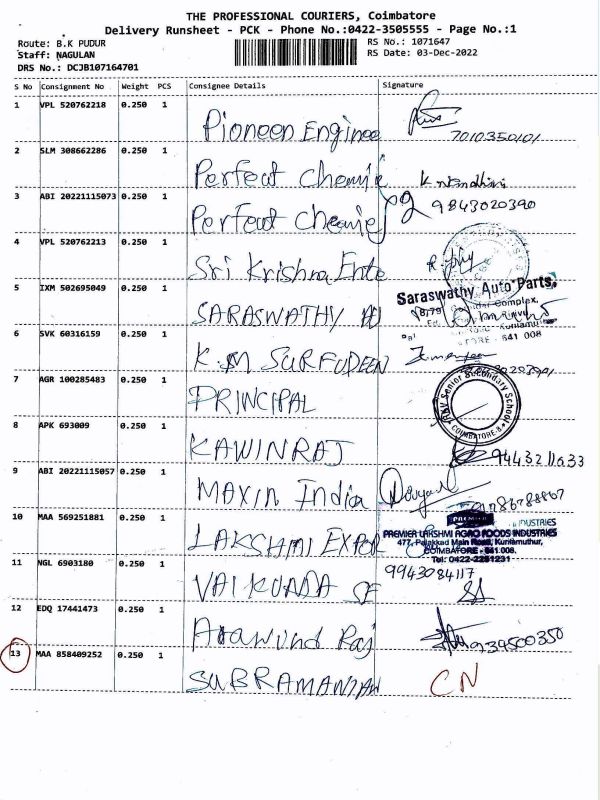 THE PROFESSIONAL COURIERS, Coimbatore
Delivery Runsheet - PCK - Phone No.:0422-3505555 - Page No.:1
Route: B.K PUDUR
RS No.: 1071647
Staff: NAGULAN
RS Date: 03-Dec-2022
DRS No.: DCJB107164701
S No Consignment No Weight PCS Consignee Details Signature
1 VPL 520762218 0.250 1
Pioneen Enginee
7010350101
2 SLM 308662286 0.250 1
Perfeat Chemie
K. Nandhini
3 ABI 20221115073 0.250 1
9843020390
Perfeat Chemie
4 VPL 520762213 0.250 1
Sri Krishna Ente
5 IXM 502695049 0.250 1
Saraswathy Auto Parts,
Complex,
SARASWATHY
641 008
6 SVK 60316159 0.250 1
K.M SURFUDEEN
7 AGR 100285483 0.250 1
Senior Secondary School
COIMBATORE-8
PRINCIPAL
8 APK 693009 0.250 1
KAWINRAJ
9443211633
9 ABI 20221115057 0.250 1
Maxin India
10 MAA 569251881 0.250 1
PREMIER
INDUSTRIES
PREMIER LAKSHMI AGRO FOODS INDUSTRIES
477, Palakkad Main Road, Kuniamuthur,
COIMBATORE - 641 008.
Tel: 0422-2251231
LAKSHMI EXPOR
11 NGL 6903180 0.250 1
9943084117
VAIKUNDA SF
12 EDQ 17441473 0.250 1
Arawind Raj
9239500350
13 MAA 858409252 0.250 1
SUBRAMANIAN
CN